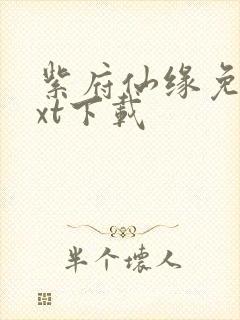 紫府仙缘免
xt下载
半个坏人